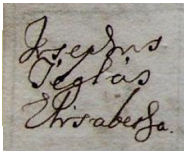 Josephus
Téglás
Elisabetha.